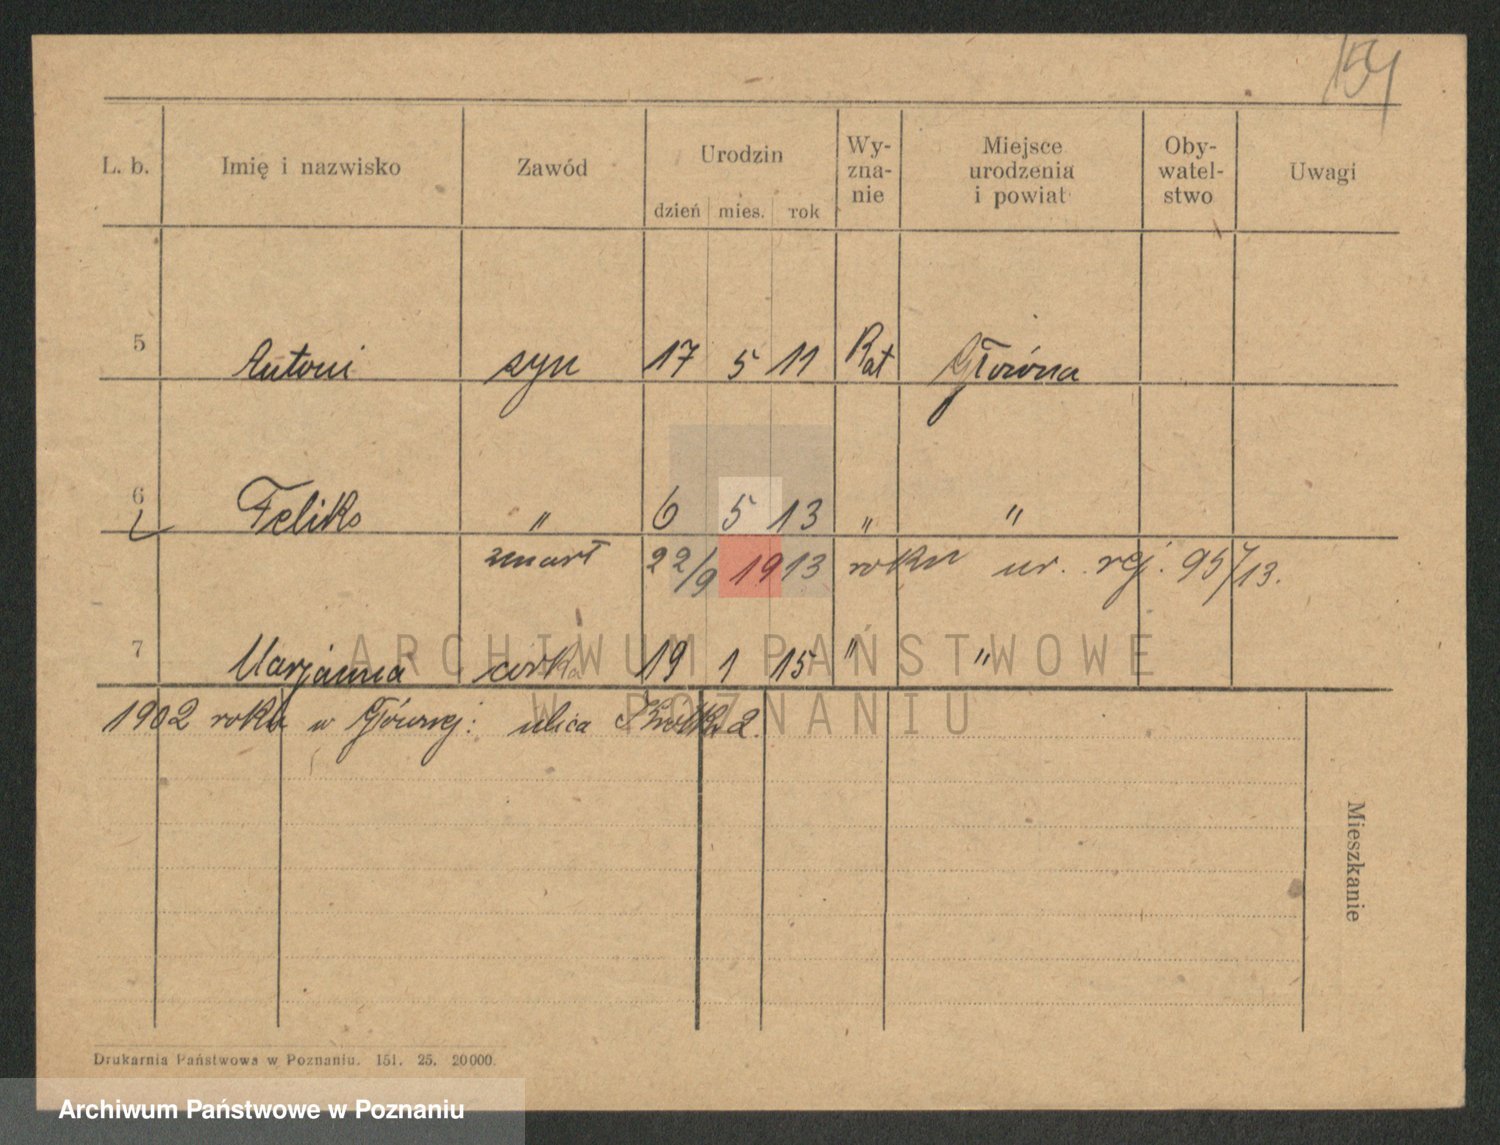 154
L. b. Imię i nazwisko Zawód Urodzin dzień mies. rok Wy-zna-nie Miejsce urodzenia i powiat Oby-watel-stwo Uwagi
5 Antoni syn 17 5 11 Kat Główna
6 Feliks " 6 5 13 " "
zmarł 22/9 1913 roku ur. rej. 95/13.
7 Marjanna corka 19 1 15 " "
1902 roku w Głównej: ulica 2.
Mieszkanie
Drukarnia Państwowa w Poznaniu. 151. 25. 20000.
ARCHIWUM PAŃSTWOWE
W POZNANIU
Archiwum Państwowe w Poznaniu